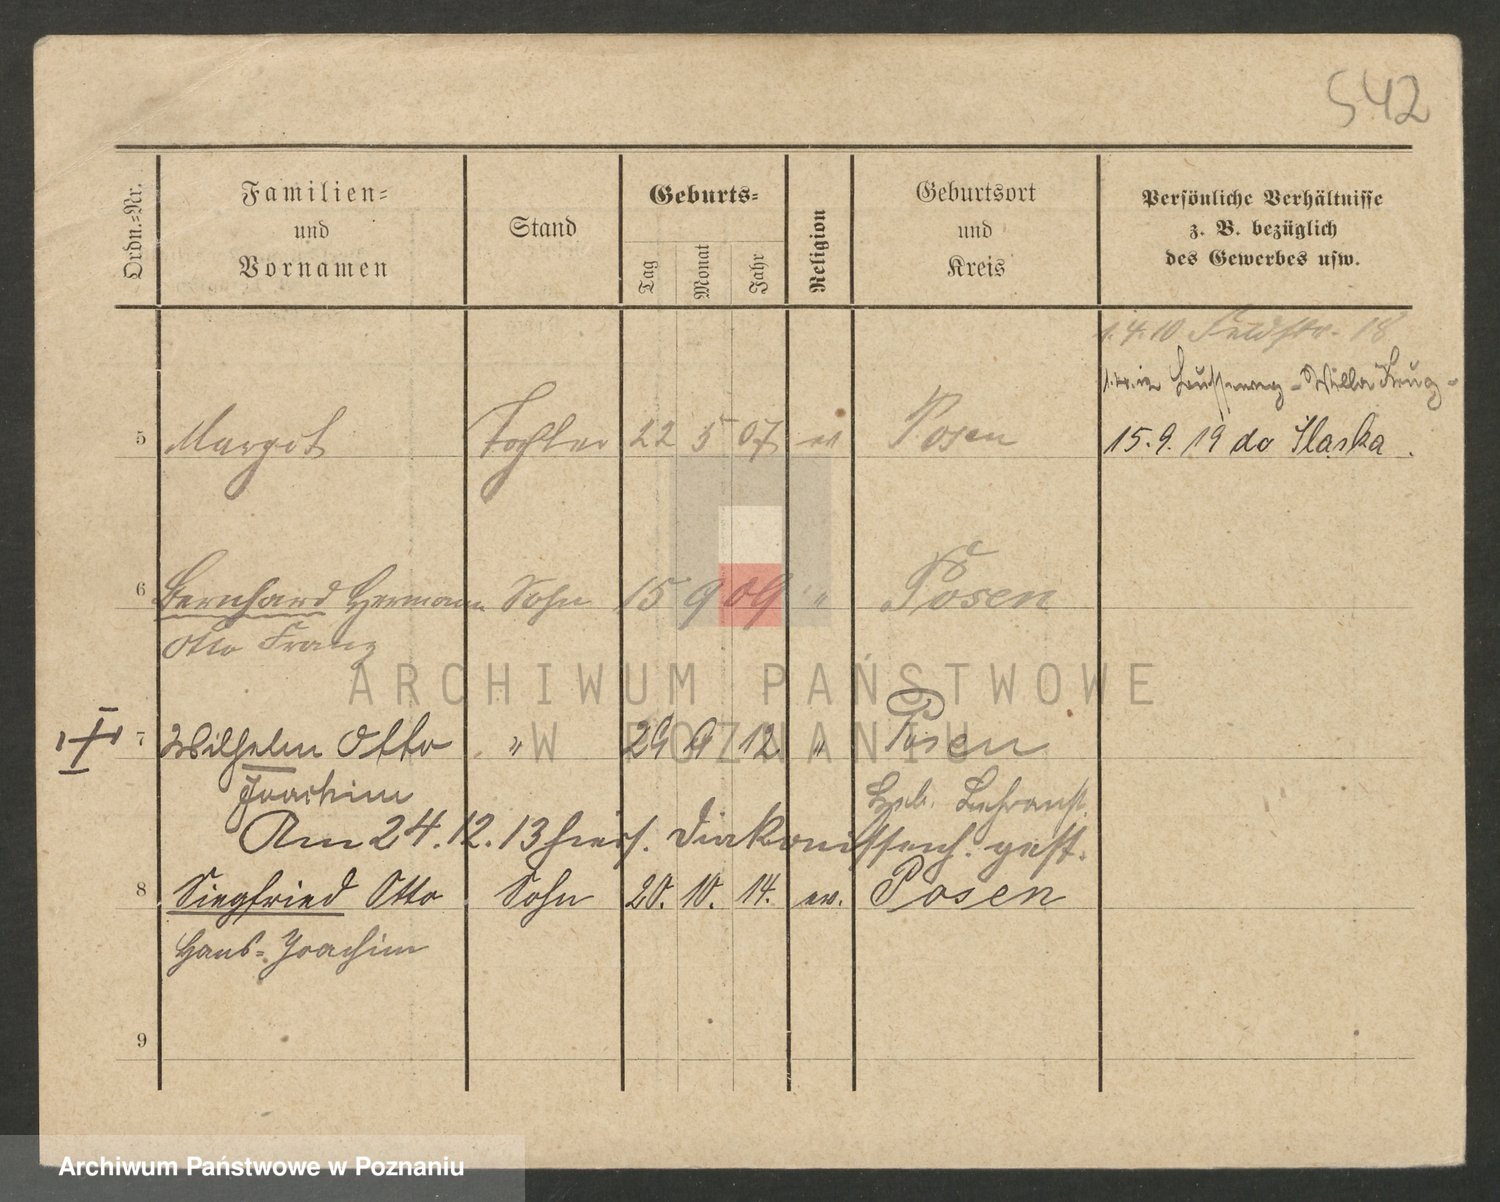 542
Ordn.=Nr.
Familien=
und
Vornamen
Stand
Geburts=
Tag
Monat
Jahr
Religion
Geburtsort
und
Kreis
Persönliche Verhältnisse
z. B. bezüglich
des Gewerbes usw.
1.4.10 Feldstr. 18
5 Margot Tochter 22 5 07 ev Posen
15.9.19 do Sląska.
6 Bernhard Hermann Sohn 15 9 09 " Posen
Otto Franz
7 Wilhelm Otto " 29 9 12 " Posen
Joachim
Am 24.12.13 hies. Diakonissenh. gest.
8 Siegfried Otto Sohn 20. 10. 14. ev. Posen
Hans=Joachim
9
ARCHIWUM PAŃSTWOWE
W POZNANIU
Archiwum Państwowe w Poznaniu